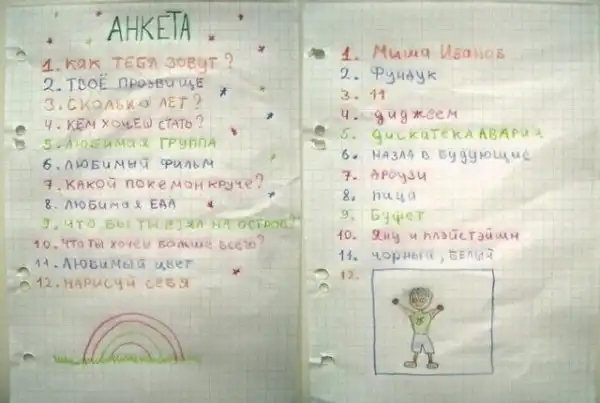 АНКЕТА
1. КАК ТЕБЯ ЗОВУТ?
2. ТВОЁ ПРОЗВИЩЕ
3. СКОЛЬКО ЛЕТ?
4. КЕМ ХОЧЕШ СТАТЬ?
5. ЛЮБИМАЯ ГРУППА
6. ЛЮБИМЫЙ ФИЛЬМ
7. КАКОЙ ПОКЕМОН КРУЧЕ?
8. ЛЮБИМАЯ ЕДА
9. ЧТО БЫ ТЫ ВЗЯЛ НА ОСТРОВ?
10. ЧТО ТЫ ХОЧЕШ БОЛЬШЕ ВСЕГО?
11. ЛЮБИМЫЙ ЦВЕТ
12. НАРИСУЙ СЕБЯ
1. Миша Иванов
2. Фундук
3. 11
4. диджеем
5. дискатека АВАРИЯ
6. НАЗАД В будующие
7. АРОУЗИ
8. пица
9. Буфет
10. Яну и плэйстэйшн
11. чорный, белый
12.